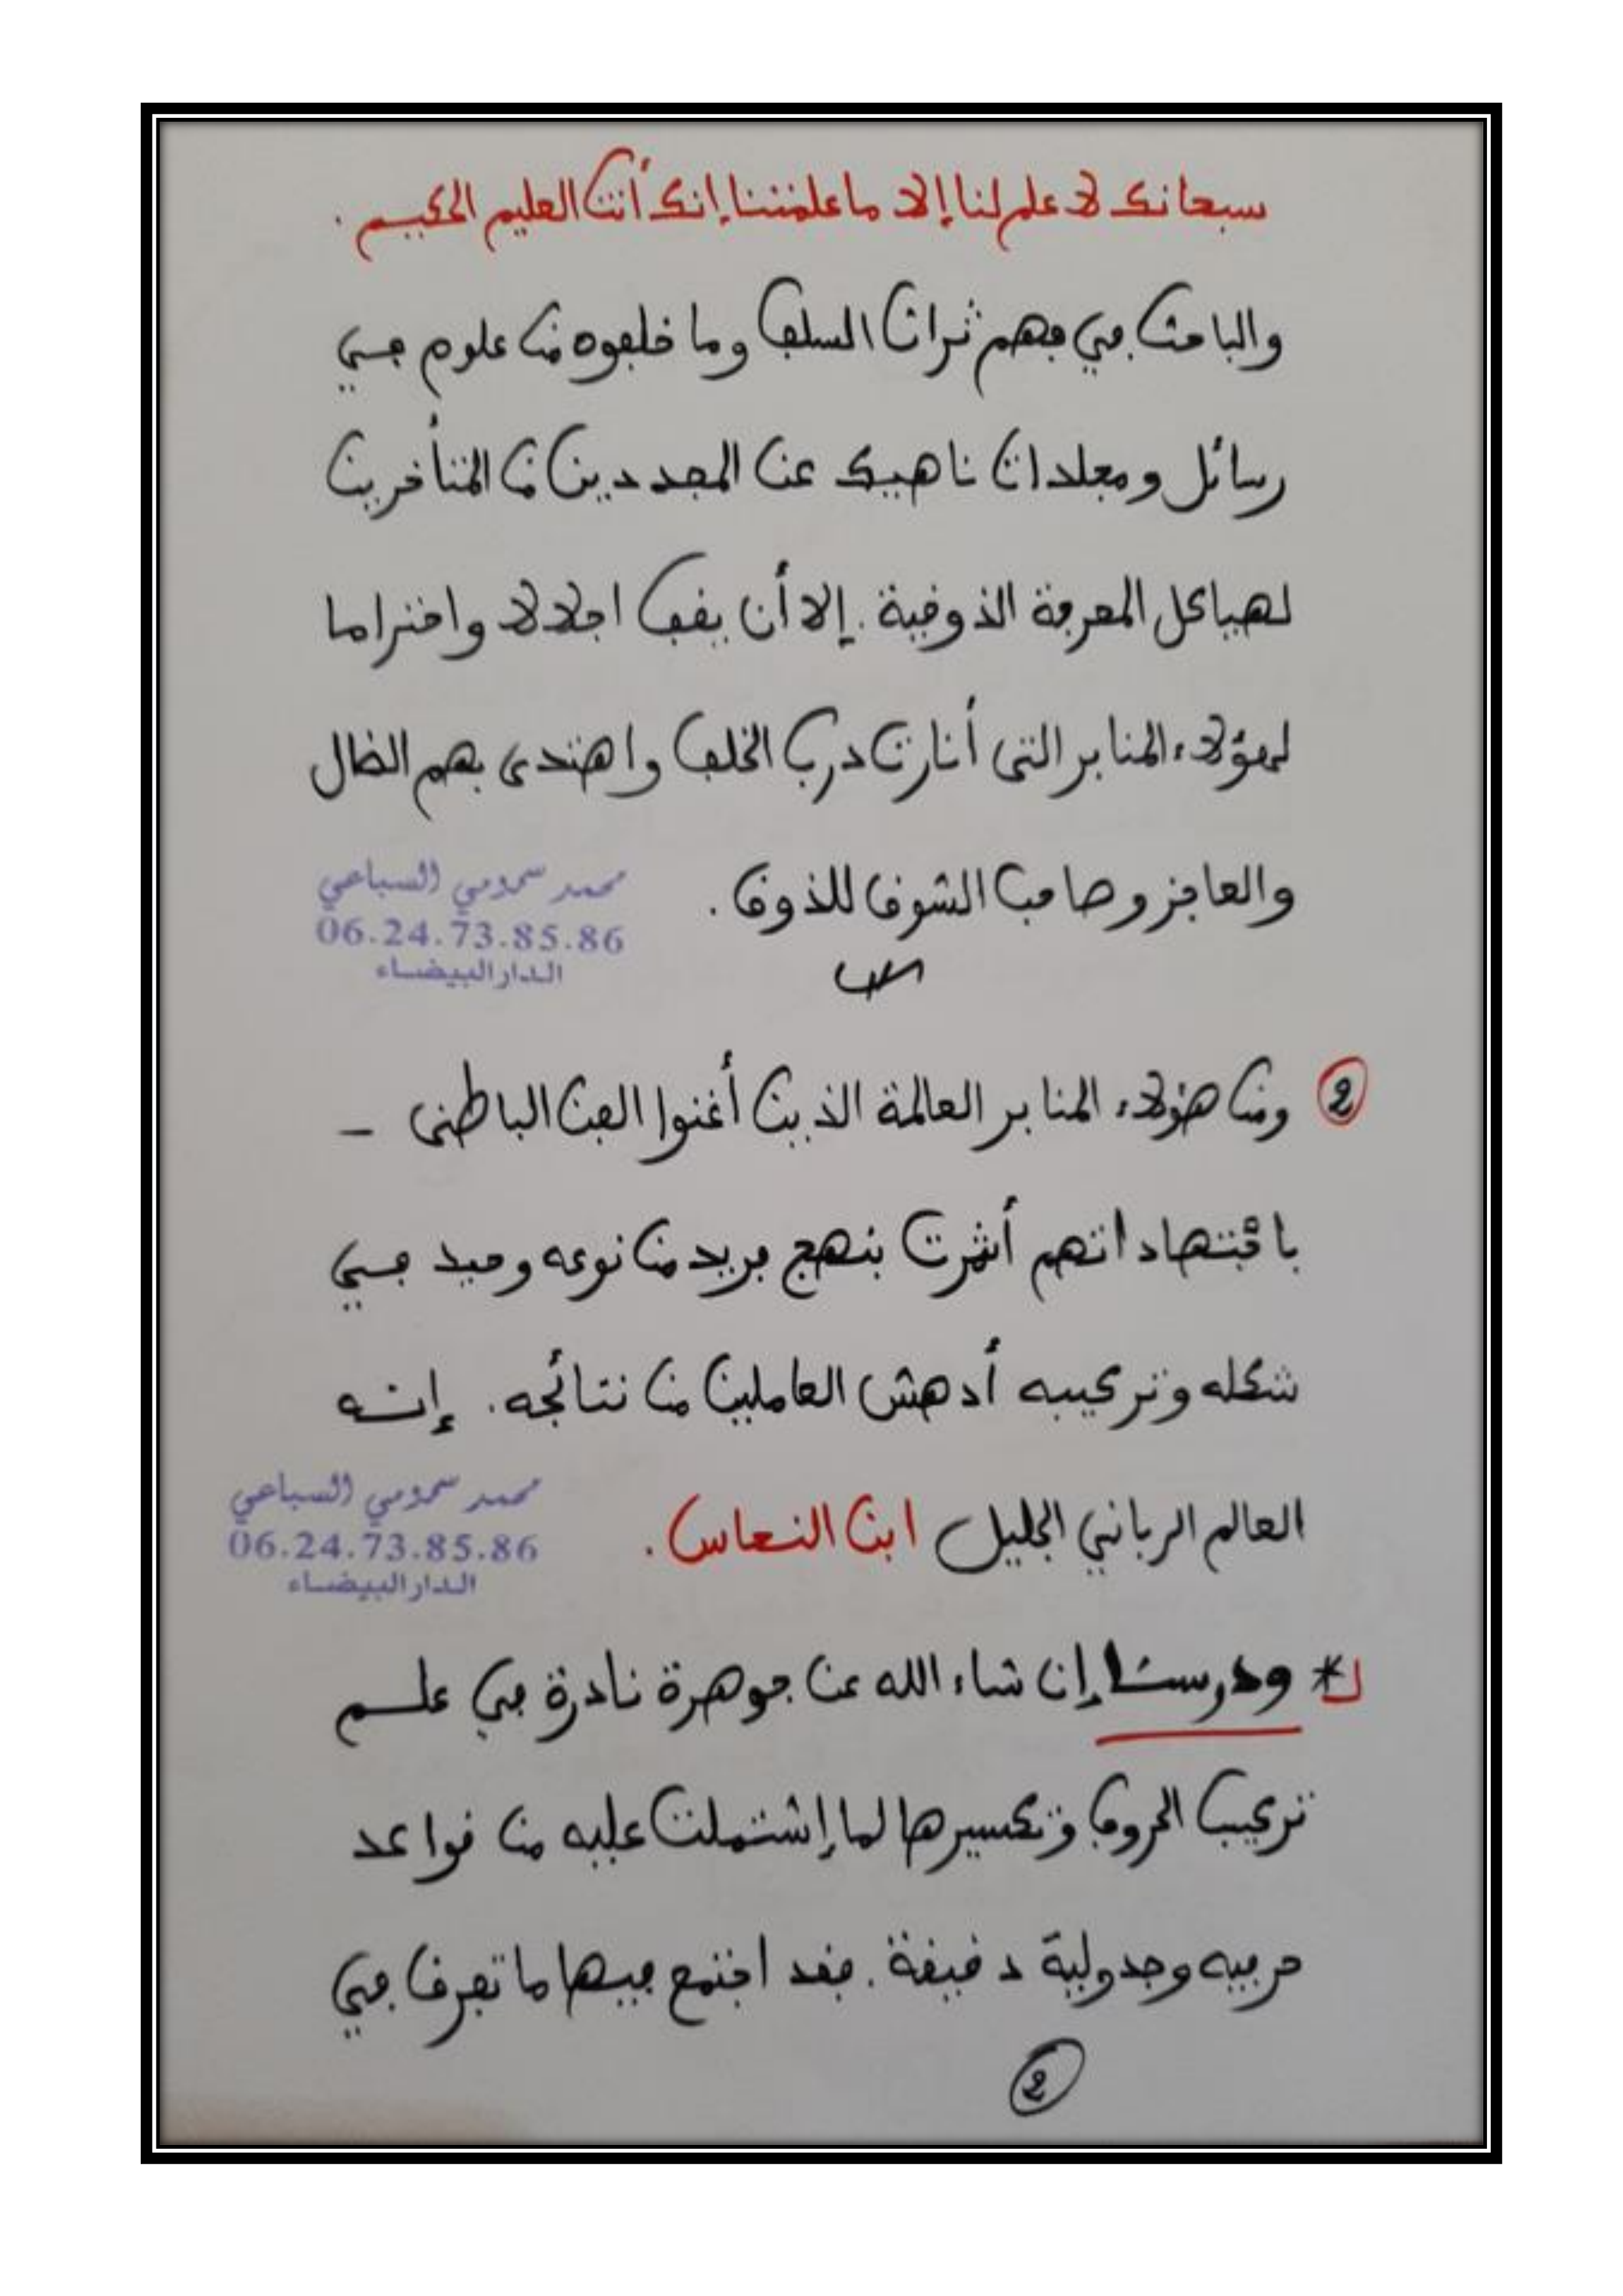 سبحانك لا علم لنا إلا ما علمتنا إنك أنت العليم الحكيم .
والباحث في فهم تراث السلف وما خلفوه من علوم في
رسائل ومجلدات ناهيك عن المجددين من المتأخرين
لهياكل المعرفة الذوقية . إلا أن يقف اجلالا واحتراما
لهؤلاء المنابر التى أنارت درب الخلف واهتدى بهم الضال
والعاجز وصاحب الشوق للذوق .
محمد سمومي السباعي
06.24.73.85.86
الدار البيضاء
2 ومن هؤلاء المنابر العالمة الذين أغنوا الفن الباطنى -
باجتهاداتهم أثمرت بنهج فريد من نوعه وحيد في
شكله وتركيبه أدهش العاملين من نتائجه . إنه
العالم الرباني الجليل ابن النحاس .
محمد سمومي السباعي
06.24.73.85.86
الدار البيضاء
* ودرسنا إن شاء الله عن جوهرة نادرة في علم
تركيب الحروف وتكسيرها لما إشتملت عليه من قواعد
حرفيه وجدولية دقيقة . فقد اجتمع فيها ما تفرق في
2